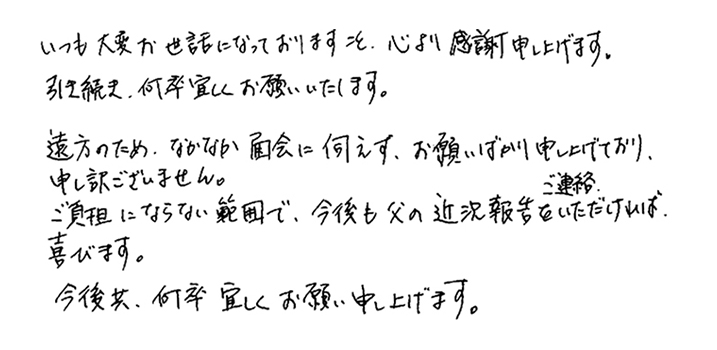 いつも大変お世話になっておりますこと、心より感謝申し上げます。
引き続き、何卒宜しくお願いいたします。
遠方のため、なかなか面会に伺えず、お願いばかり申し上げており、
申し訳ございません。
ご連絡
ご負担にならない範囲で、今後も父の近況報告をいただければ、
喜びます。
今後共、何卒宜しくお願い申し上げます。